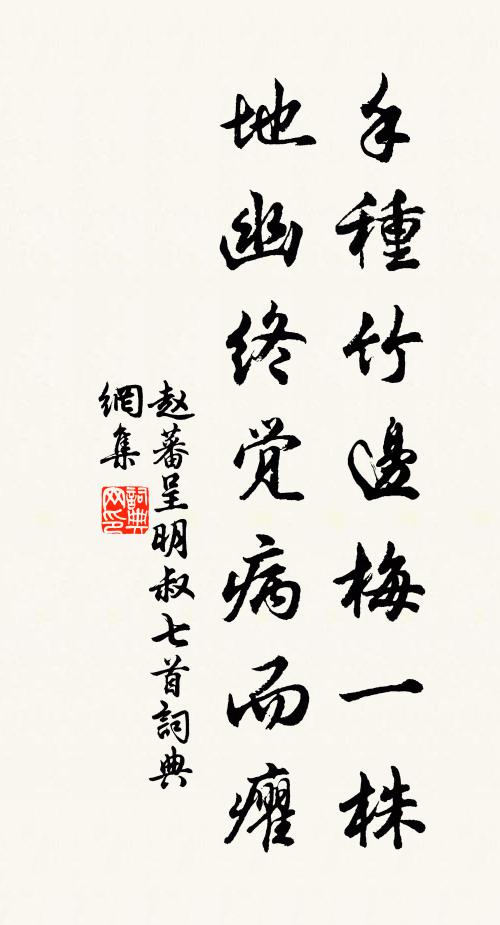 手種竹邊梅一株
地幽终觉病而癯
赵蕃呈明叔七首詞典
網集
詞典网印